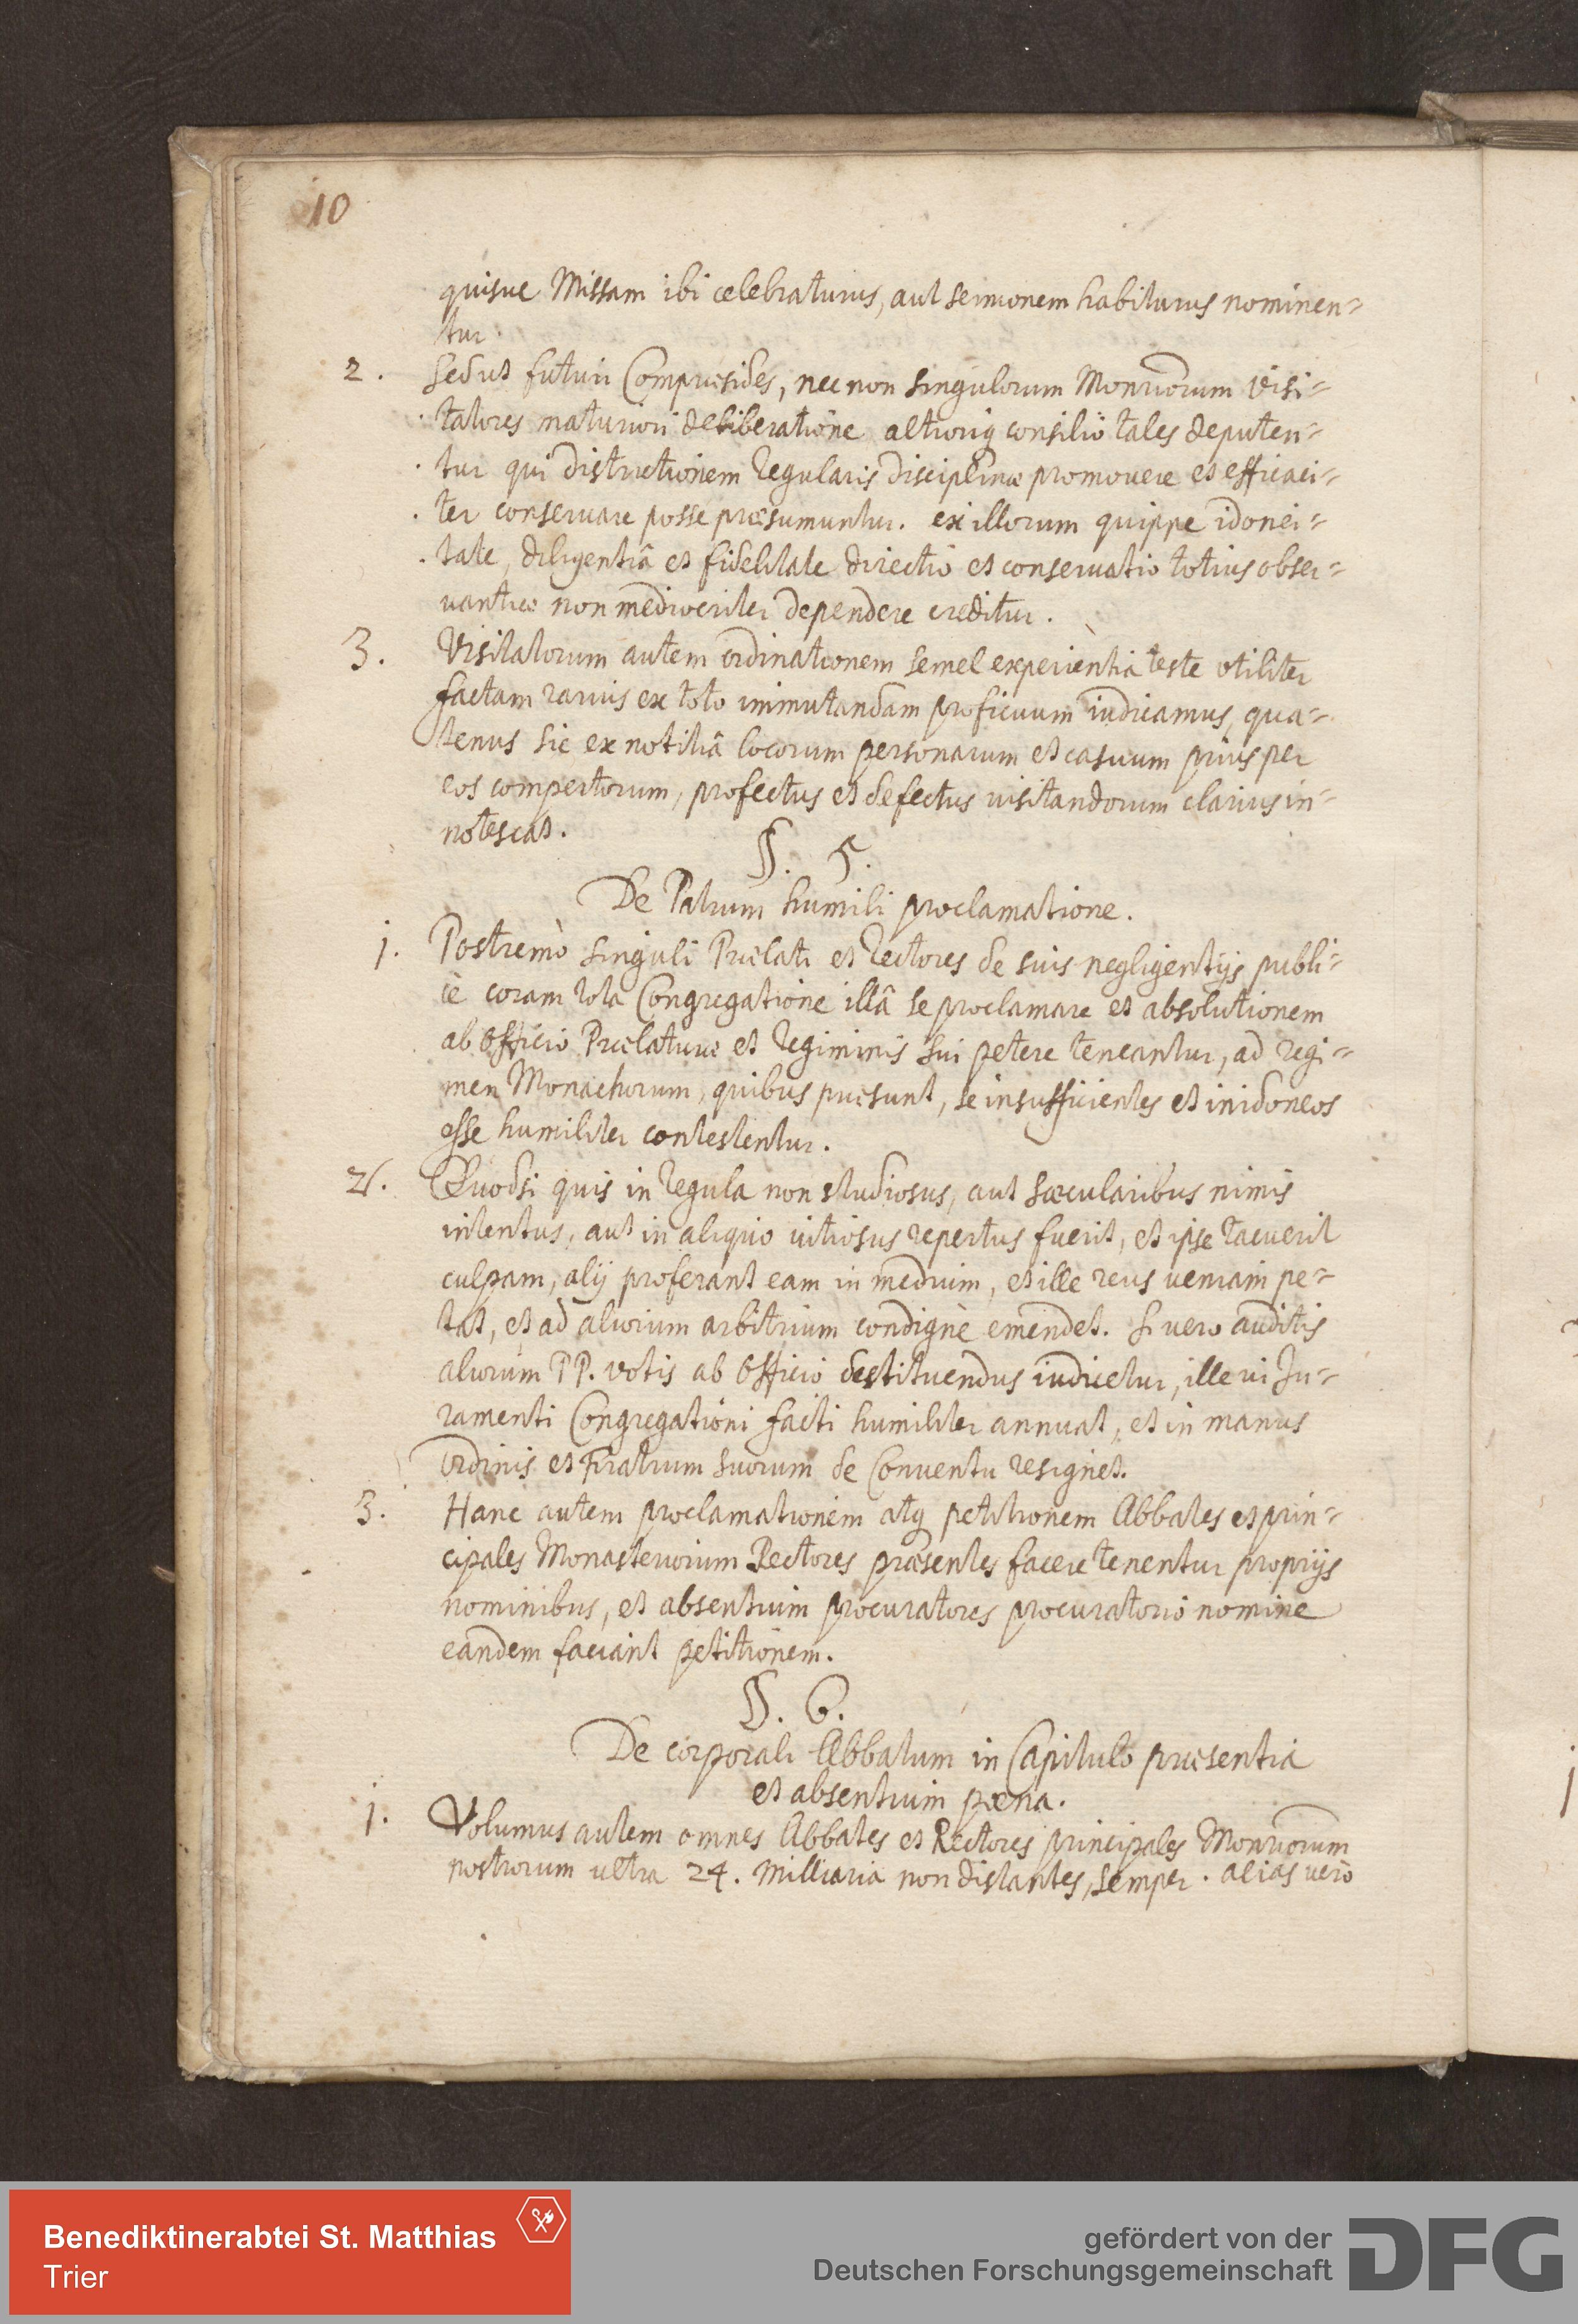 10
quisue Missam ibi celebraturus, aut sermonem habiturus nominen=
tur.
2. Sed ut futuri Compræsides, nec non singulorum Monriorum visi=
tatores maturiori deliberatione altioriq consilio tales deputen=
tur qui districtionem regularis disciplinæ promouere et efficaci=
ter conseruare posse præsumuntur. ex illorum quippe idonei=
tate, diligentiâ et fidelitate directio et conseruatio totius obser=
uantiæ non mediocriter dependere creditur.
3. Visitatorum autem ordinationem semel experientia teste vtiliter
factam rarius ex toto immutandam proficuum iudicamus, qua=
tenus sic ex notitiâ locorum personarum et casuum prius per
eos compertorum, profectus et defectus uisitandorum clarius in=
notescat.
§. 5.
De Patrum humili proclamatione.
1. Postremò singuli Prælati et rectores de suis negligentijs publi=
cè coram tota Congregatione illâ se proclamare et absolutionem
ab officio Prælaturæ et regiminis sui petere teneantur, ad regi=
men Monachorum, quibus præsunt, se insufficientes et inidoneos
esse humiliter contestentur.
2. Quodsi quis in regula non studiosus, aut sæcularibus nimis
intentus, aut in aliquo uitiosus repertus fuerit, et ipse tacuerit
culpam, alij proferant eam in medium, et ille reus ueniam pe=
tat, et ad aliorum arbitrium condignè emendet. Si uero auditis
aliorum PP. votis ab officio destituendus iudicetur, ille ui Ju=
ramenti Congregationi facti humiliter annuat, et in manus
Ordinis et Fratrum suorum de Conuentu resignet.
3. Hanc autem proclamationem atq petitionem Abbates et prin=
cipales Monasteriorum Rectores præsentes facere tenentur proprijs
nominibus, et absentium procuratores procuratorio nomine
eandem faciant petitionem.
§. 6.
De corporali Abbatum in Capitulo præsentia
et absentium pœna.
1. Volumus autem omnes Abbates et Rectores principales Monriorum
nostrorum ultra 24. milliaria non distantes, semper. alias verò
Benediktinerabtei St. Matthias
Trier
gefördert von der
Deutschen Forschungsgemeinschaft
DFG